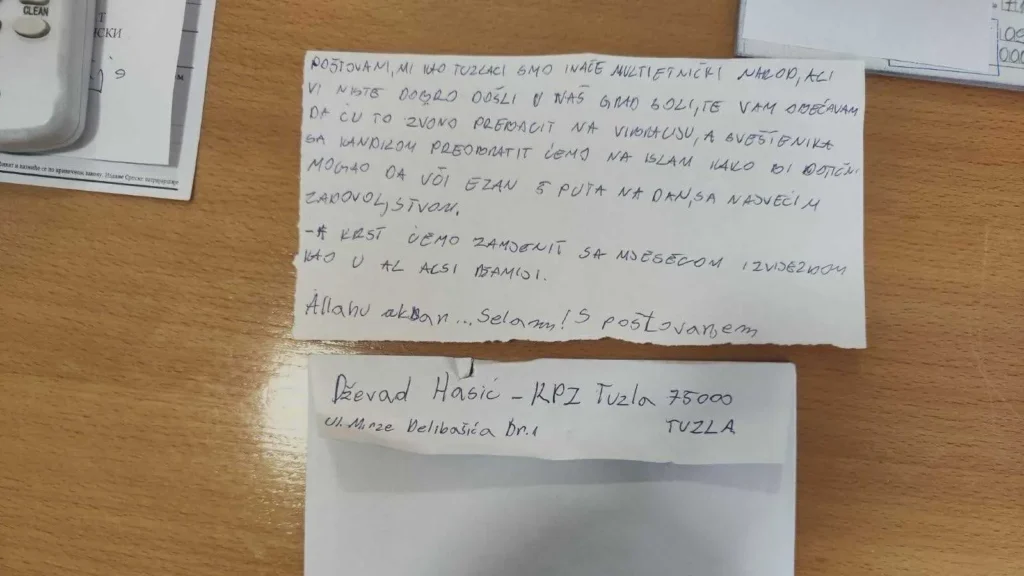 CLEAN
СКИ
POŠTOVANI, MI KAO TUZLACI SMO INAČE MULTIETNIČKI NAROD, ALI
VI NISTE DOBRO DOŠLI U NAŠ GRAD SOLI, TE VAM OBEĆAVAM
DA ĆU TO ZVONO PREBACIT NA VIBRACIJU, A SVEŠTENIKA
SA KANDILOM PREOBRATIT ĆEMO NA ISLAM KAKO BI DOTIČNI
MOGAO DA UČI EZAN 5 PUTA NA DAN, SA NAJVEĆIM
ZADOVOLJSTVOM.
-A KRST ĆEMO ZAMJENIT SA MJESECOM I ZVIJEZDOM
KAO U AL AKSI DŽAMIJI.
Allahu akbar... Selam! S poštovanjem
Dževad Hasić - KPZ Tuzla 75000
Ul. Mirze Delibašića Br.1 TUZLA